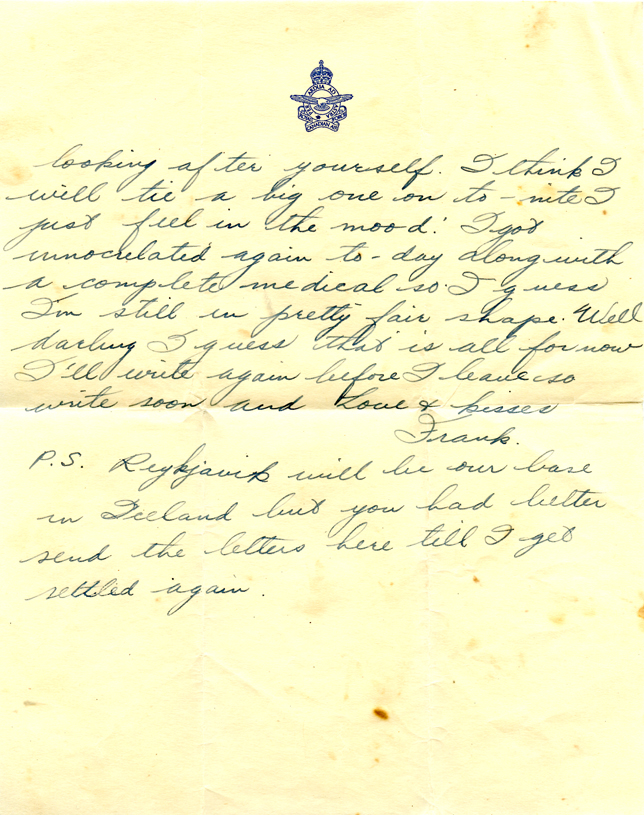 PER ARDUA AD ASTRA
ROYAL CANADIAN AIR FORCE
looking after yourself. I think I
will tie a big one on to-nite I
just feel in the mood! I got
innocrelated again to-day along with
a complete medical so I guess
I'm still in pretty fair shape. Well
darling I guess that is all for now
I'll write again before I leave so
write soon and Love & kisses
Frank.
P.S. Reykjavik will be our base
in Iceland but you had better
send the letters here till I get
settled again.